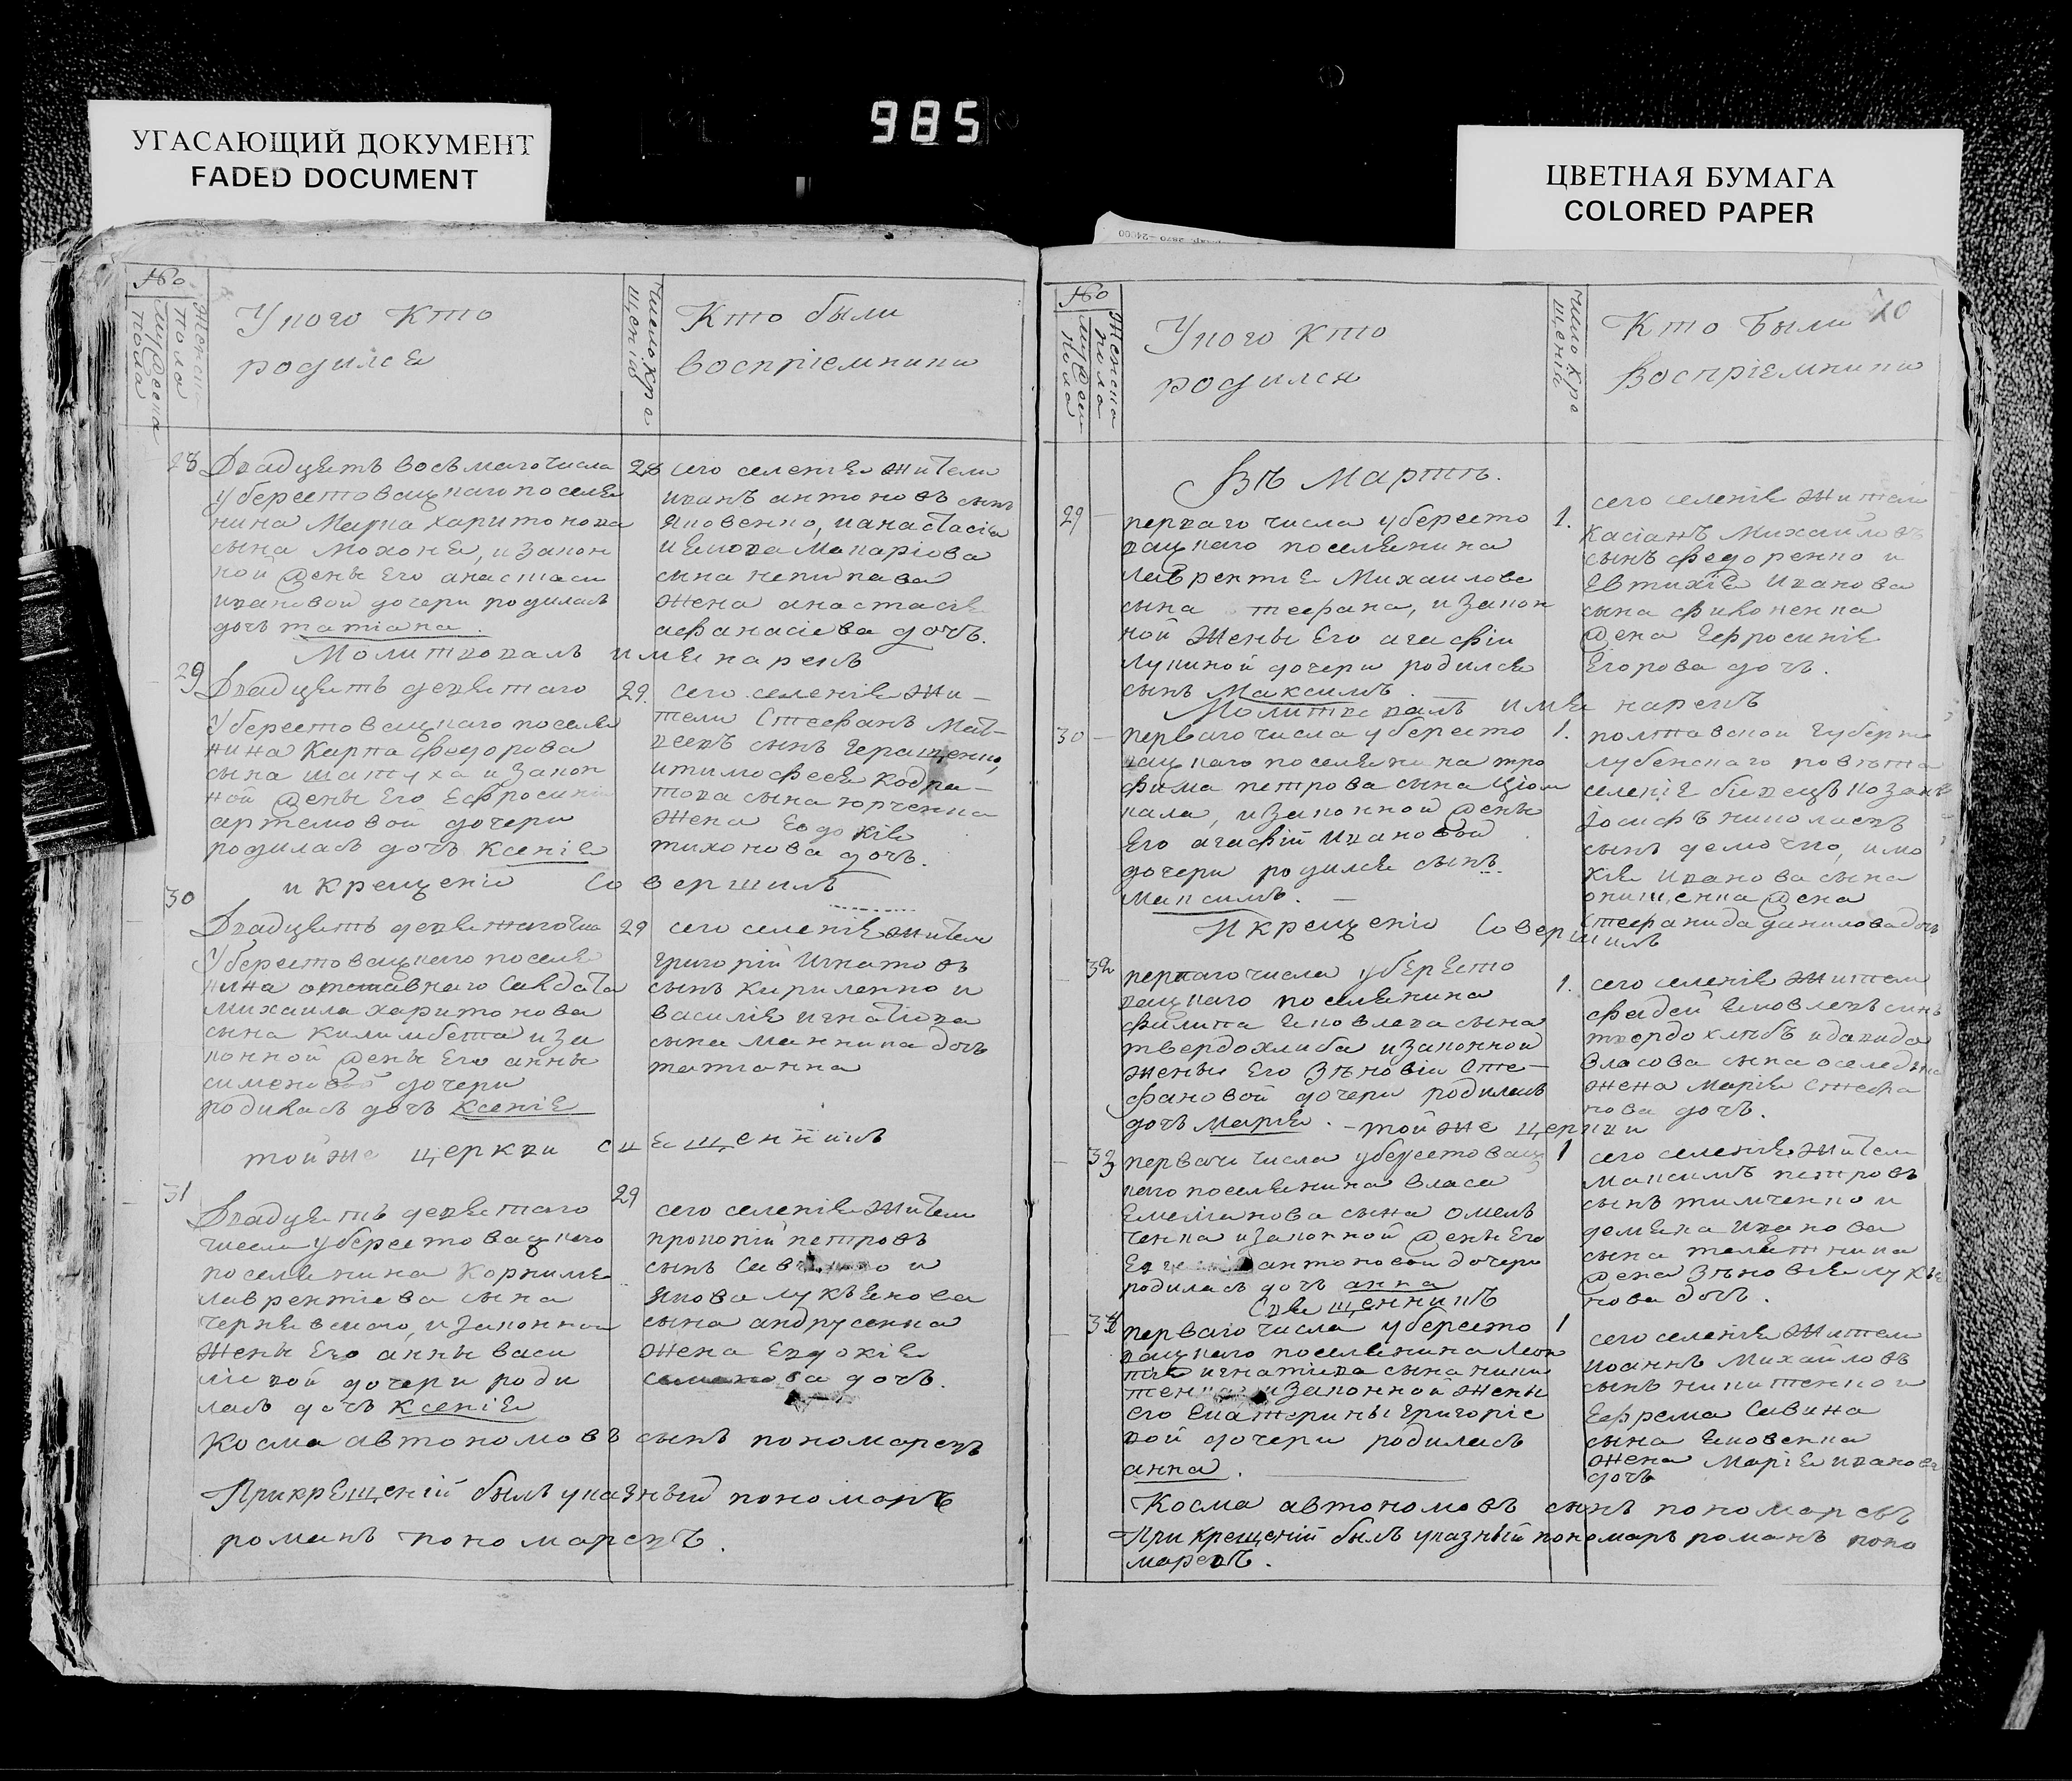 985
УГАСАЮЩИЙ ДОКУМЕНТ
FADED DOCUMENT
ЦВЕТНАЯ БУМАГА
COLORED PAPER
№
Женска пола
мужеска пола
У кого кто
родился
Число крещенія
Кто были
воспріемники
28 Двадцеть восьмаго числа
у берестовацкаго поселе
нина Марка харитонова
сына мохоне, и закон
ной жены его анастаси
ивановой дочери родилась
дочь татіана.
28 сего селеніе жители
иванъ антоновъ сынъ
Яковенко, и анастасіе
иекова макаріева
жена анастасіе
афанасіева дочь.
Молитвовалъ име нарекъ
29 Двадцеть деветаго
У берестовацкаго поселе
нина Карпа федорова
сына шатуха и закон
ной жены его Ефросинии
артемовой дочери
родилась дочь Ксеніе
29. сего селеніе жи-
тели Стефанъ Мат-
веевъ сынъ Геращенко,
и тимофее кодра-
това сына юрченка
жена Евдокіе
тихонова дочь.
и крещеніе совершилъ
30 Двадцеть деветаго чис
У берестовацкаго поселе
нина отставнаго Салдата
михаила харитонова
сына килимбета и за
конной жены его анны
сименовой дочери
родилась дочь Ксеніе
29 сего селеніе жители
григорій Игнатовъ
сынъ кириленко и
василіе игнатіева
сына манника дочь
татіанна
тойже церкви свещенникъ
31 Двадцеть деветаго
числа у берестовацкаго
поселенина Корниле
лаврентіева сына
черневскаго, и законной
жены его анны васи
ліевой дочери роди
лась дочь Ксеніе
29 сего селеніе жители
прокопій петровъ
сынъ и
Якова лукъенова
сына андрусенка
жена Евдокіе
дочь.
Косма автономовъ сынъ пономаревъ
При крещеній былъ указный пономарь
романъ пономаревъ.
№
Женска пола
мужеска пола
У кого кто
родился
Число крещеніе
Кто были
Воспріемники
10
Въ Мартѣ.
29 перваго числа у бересто
вацкаго поселенина
лаврентіе Михаилова
сына стефана, и закон
ной жены его агафіи
лукиной дочери родился
сынъ Максимъ.
1. сего селеніе жители
Касіанъ Михаиловъ
сынъ федоренко и
Евтихіе иванова
сына
жена Ефросиніе
Егорова дочь.
Молитвовалъ име нарекъ
30 перваго числа у бересто
вацкаго поселенина тро
фима петрова сына
и законной жены
его агафій ивановой
дочери родился сынъ
максимъ.
1. полтавской губерни
лубенскаго повѣта
селеніе
Іосифъ николаевъ
сынъ
иванова сына
онищенка жена
Стефанида данилова дочь
И крещеніе совершилъ
32 перваго числа у бересто
вацкаго поселенина
филипа Яковлева сына
твердохлиба и законной
жены его Зѣновіи Сте-
фановой дочери родилась
дочь маріе.
1. сего селеніе жители
фадей Яковлевъ сынъ
твордохлѣбъ и давида
власова сына оселедька
жена Маріе Стефа
нова дочь.
тойже церкви
33 перваго числа у берестовац
каго поселенина власа
Емелянова сына омель
ченка и законной жены его
антоновой дочери
родилась дочь анна
1 сего селеніе жители
Максимъ петровъ
сынъ тимченко и
демяна иванова
сына телетника
жена Зѣновіе лукье
нова дочь.
Свещенникъ
34 перваго числа у бересто
вацкаго поселенина Леон
тіе игнатіева сына ники
тенка и законной жены
его Екатерины григоріе
вой дочери родилась
анна.
1 сего селеніе жители
иоаннъ Михайловъ
сынъ никитенко и
Ефрема Савина
сына Яковенка
жена Маріе иванова
дочь
Косма автономовъ сынъ пономаревъ
При крещеній былъ указный пономарь романъ поно
маревъ.